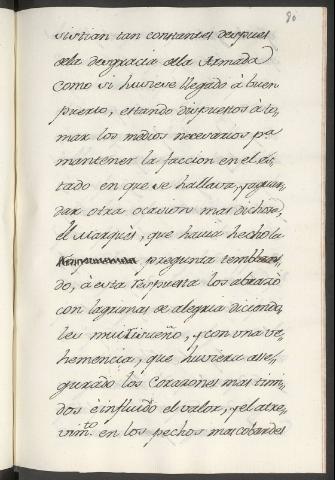 80
sistian tan constantes despues
de la desgracia de la Armada
como si huviese llegado à buen
puerto, estando dispuestos à to,
mar los medios necesarios pa
mantener la faccion en el es,
tado en que se hallava, y aguar,
dar otra ocasion mas dichosa,
el Marquès, que havia hecho la
pregunta temblan,
do, à esta respuesta los abrazò
con lagrimas de alegria diciendo,
les y con una ve,
hemencia, que huviera asse,
gurado los corazones mas timi,
dos è influido el valor, y el atre,
vimto. en los pechos mas cobardes